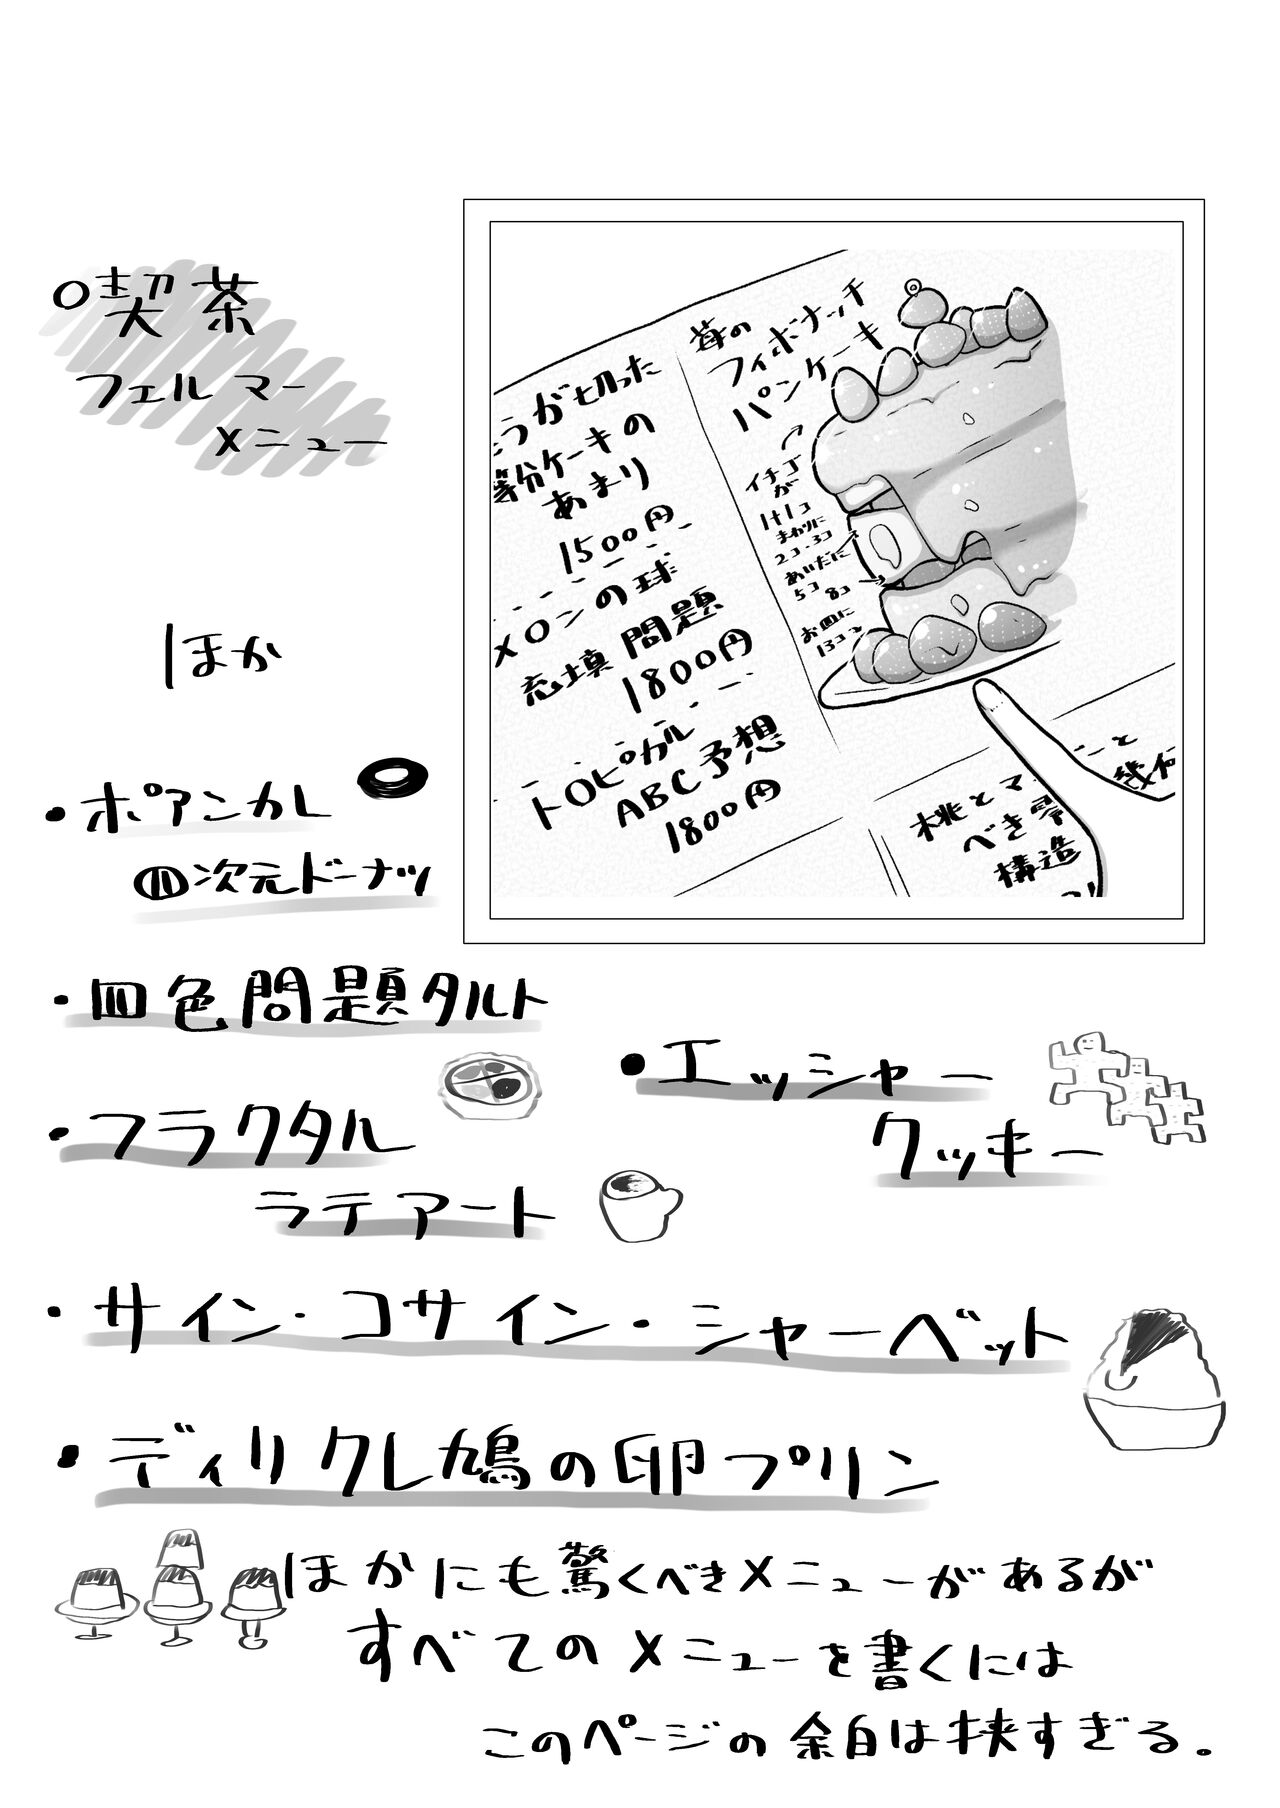 喫茶
フェルマー
メニュー
うが切った
等分ケーキの
あまり
1500円
メロンの球
充填問題
1800円
トロピカル
ABC予想
1800円
苺の
フィボナッチ
パンケーキ
イチゴ
が
1+1コ
まわりに
2コ・3コ
あいだに
5コ 8コ
お皿に
13コ
桃とマ
べき零
構造
ーと
幾何
ほか
・ポアンカレ
四次元ドーナツ
・四色問題タルト
・フラクタル
ラテアート
・エッシャー
クッキー
・サイン・コサイン・シャーベット
・ディリクレ鳩の卵プリン
ほかにも驚くべきメニューがあるが
すべてのメニューを書くには
このページの余白は狭すぎる。